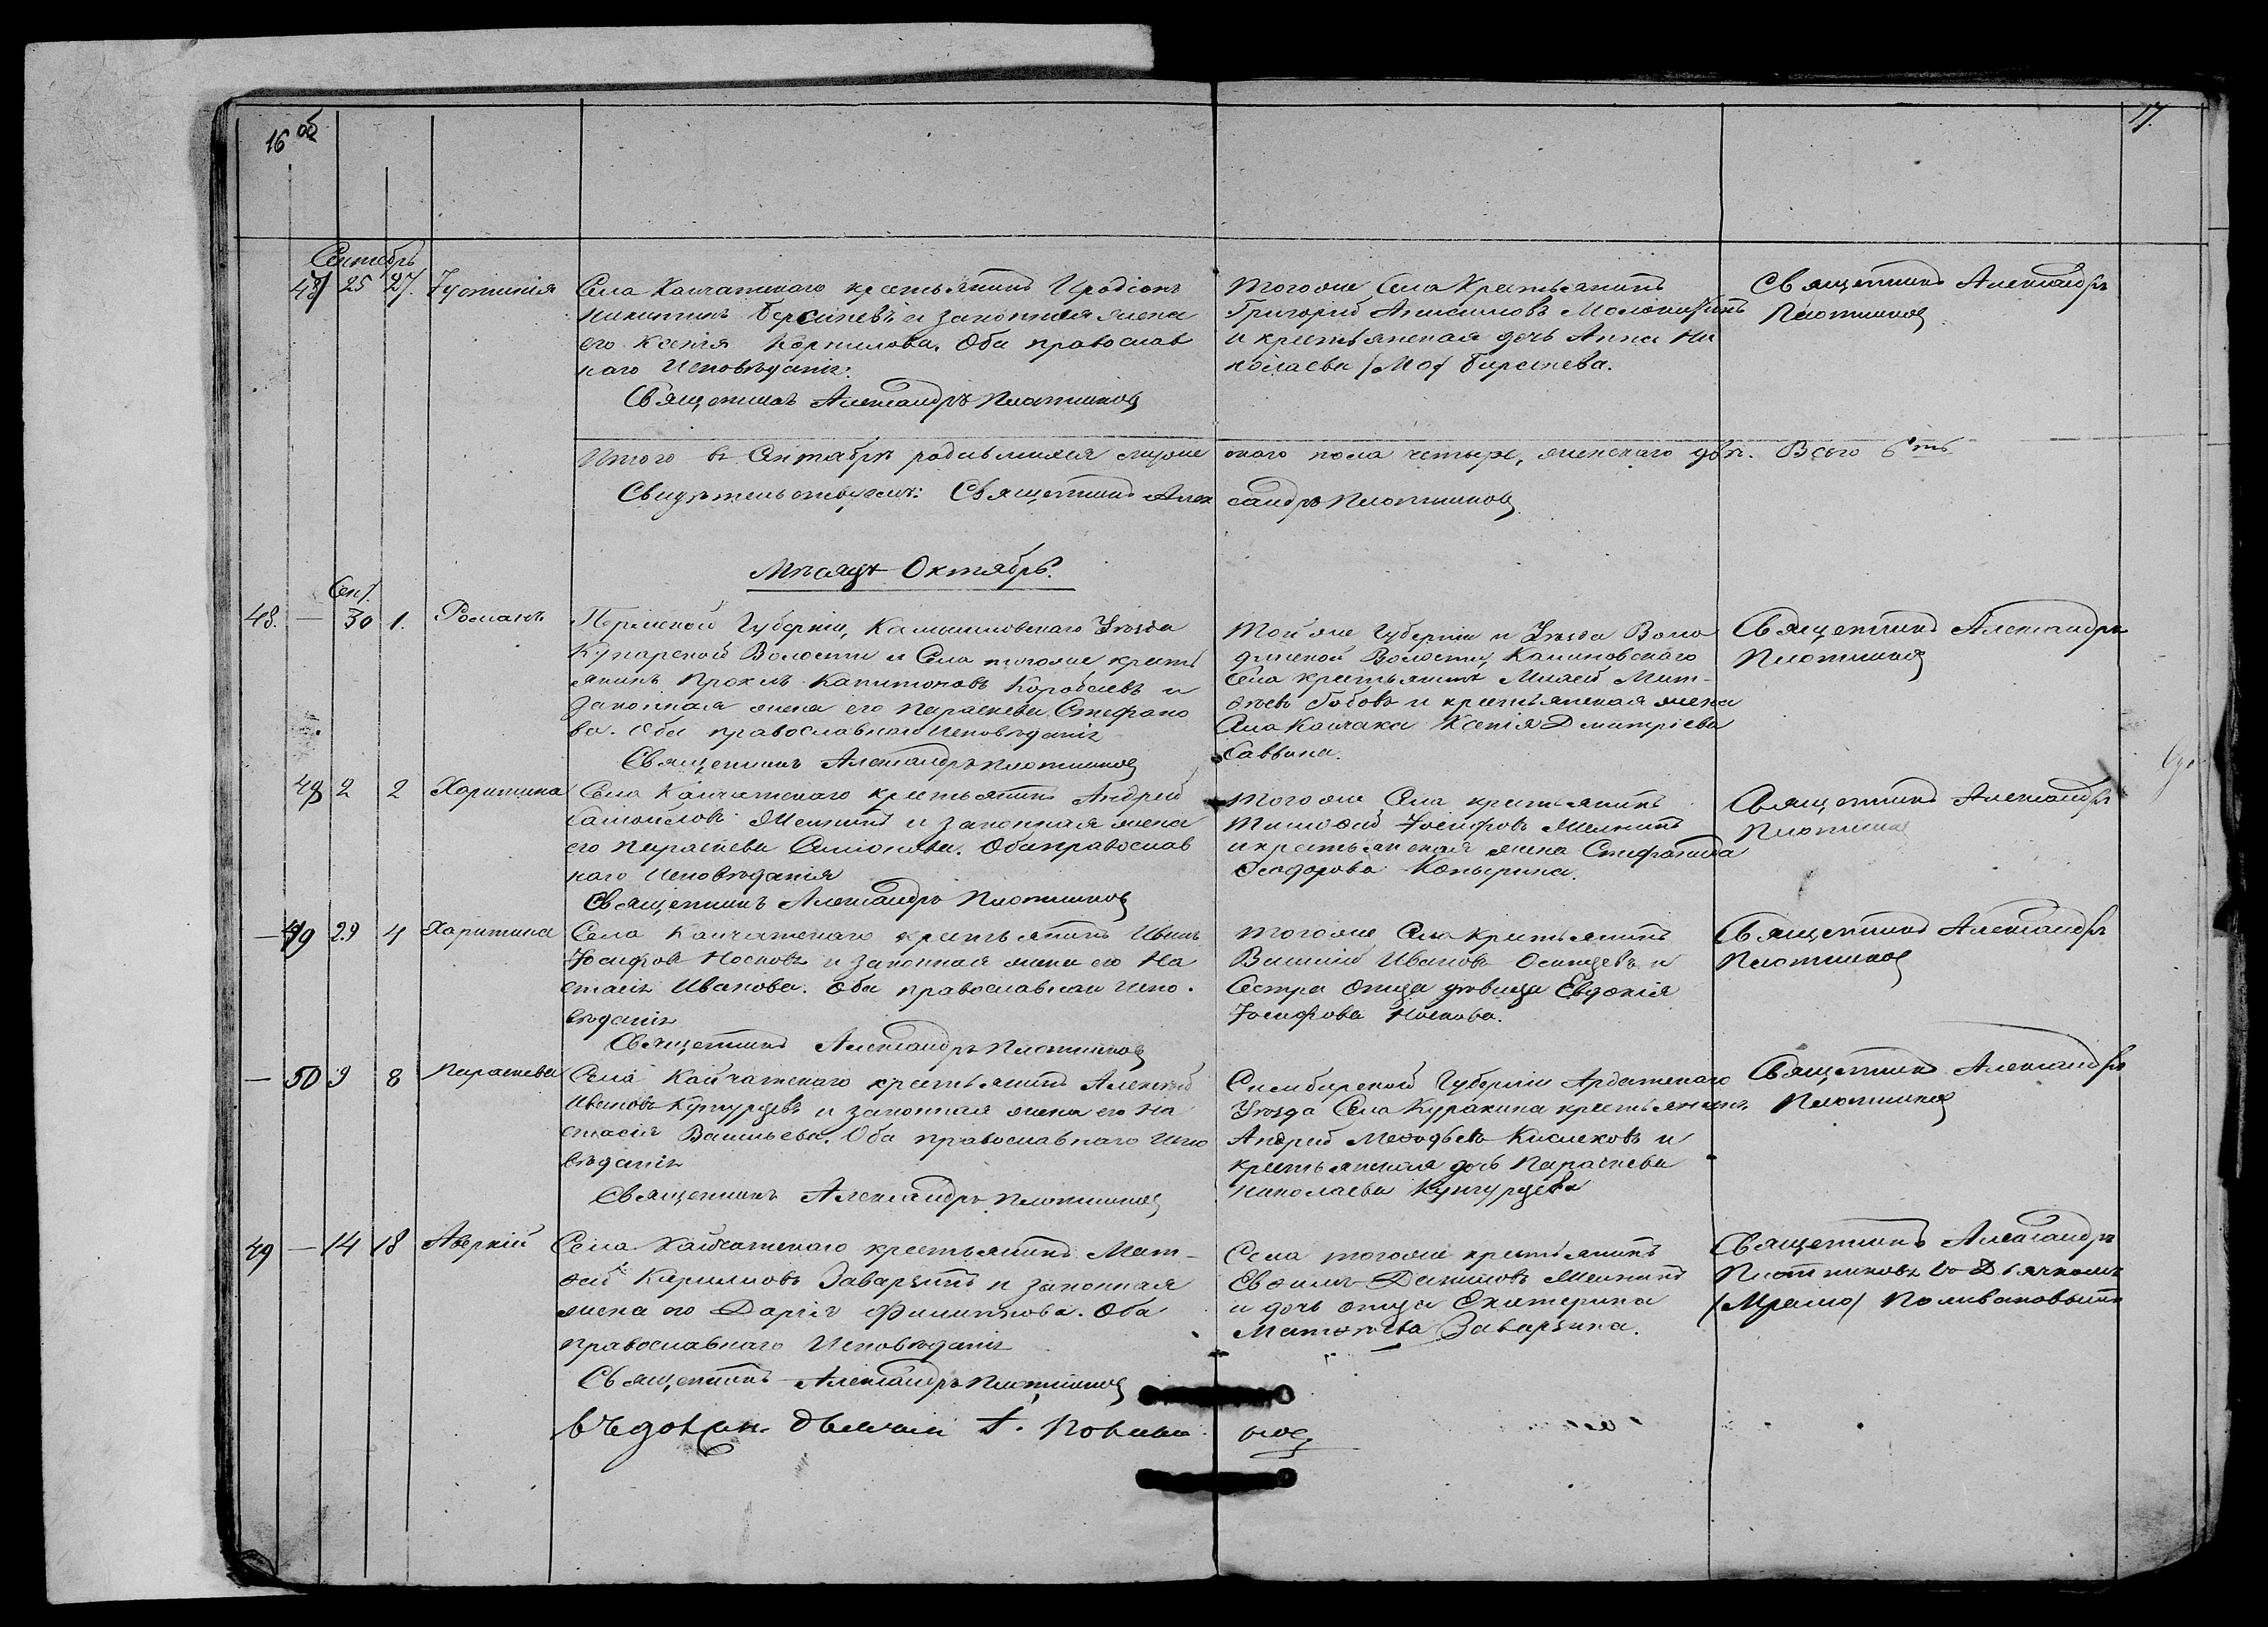 16 об
17.
Сентябрь
47 25 27. Іустинія
Села Кайгатскаго крестьянинъ Иродіонъ
Никитинъ Берсеневъ и законная жена
его Ксенія Корнилова. Оба православ
наго Исповѣданія.
Священникъ Александръ Плотниковъ
Тогоже Села Крестьянинъ
Григорій Анисимовъ
и крестьянская дочь Анна Ни
колаева Берсенева.
Священникъ Александръ
Плотниковъ
Итого въ Сентябрѣ родившихся муже скаго пола четыре, женскаго двѣ. Всего 6ть
Свидѣтельствуемъ: Священникъ Алек сандръ Плотниковъ
Мѣсяцъ Октябрь.
Сент.
48. — 30 1. Романъ
Пермской Губерніи, Камышловскаго Уѣзда
Кунарской Волости и Села тогоже кресть
янинъ Прохоръ Капитоновъ Коробковъ и
законная жена его Параскева Стефано
ва. Оба православнаго Исповѣданія
Священникъ Александръ Плотниковъ
Тойже Губерніи и Уѣзда Воло
Волости, Калиновскаго
Села крестьянинъ Мат-
ѳеевъ и крестьянская жена
Села Ксенія Дмитріева
Саввина.
Священникъ Александръ
Плотниковъ
48 2 2 Харитина
Села Кайгатскаго крестьянинъ Андрей
Самойловъ Мелкинъ и законная жена
его Параскева Симонова. Оба православ
наго Исповѣданія
Священникъ Александръ Плотниковъ
Тогоже Села крестьянинъ
Тимоѳей Іосифовъ Мелкинъ
и крестьянская жена Стефанида
Ѳеодорова Копырина.
Священникъ Александръ
Плотниковъ
— 49 29 4 Харитина
Села Кайгатскаго крестьянинъ Иванъ
Іосифовъ Носковъ и законная жена его На
стасія Иванова. Оба православнаго Испо-
вѣданія
Священникъ Александръ Плотниковъ
Тогоже Села Крестьянинъ
Василій Ивановъ Осинцевъ и
Сестра отца дѣвица Евдокія
Іосифова Носкова.
Священникъ Александръ
Плотниковъ
— 50 9 8 Параскева
Села Кайгатскаго крестьянинъ Алексѣй
Ивановъ Кунгурцевъ и законная жена его На
стасія Васильева. Оба православнаго Испо
вѣданія
Священникъ Александръ Плотниковъ
Симбирской Губерніи Ардатскаго
Уѣзда Села Куракина крестьянинъ
Андрей Меѳодьевъ Кислековъ и
крестьянская дочь Параскева
Николаева Кунгурцева
Священникъ Александръ
Плотниковъ
49 — 14 18 Аверкій
Села Кайгатскаго крестьянинъ Мат-
ѳей Кириловъ Заварзинъ и законная
жена его Дарія Филиппова. Оба
православнаго Исповѣданія
Священникъ Александръ Плотниковъ
Села тогоже крестьянинъ
Евѳимъ Даниловъ Мелкинъ
и дочь отца Екатерина
Матѳеева Заварзина.
Священникъ Александръ
Плотниковъ съ Дьячкомъ
Поливановымъ